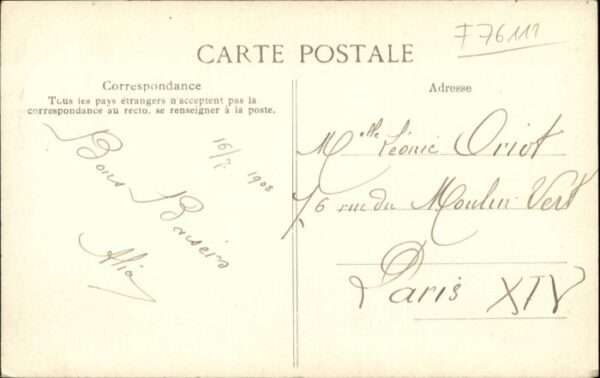 F76111
CARTE POSTALE
Correspondance
Tous les pays étrangers n'acceptent pas la
correspondance au recto, se renseigner à la poste.
Adresse
16/7 1908
Bons Baisers
Mlle Léonie Oriot
76 rue du Moulin Vert
Paris XIV